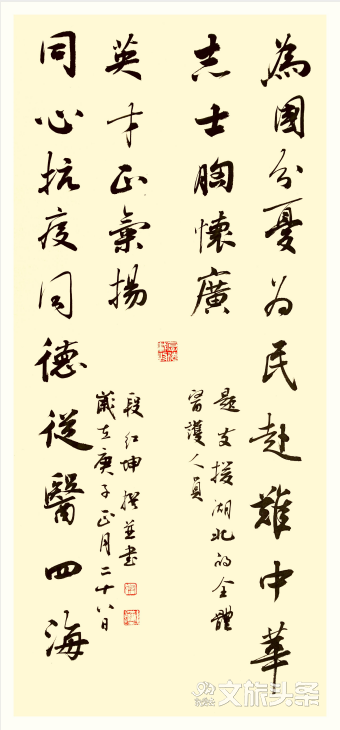 為國分憂为民赴難中華
志士胸懷廣
題支援湖北的全體
醫護人員
同心抗疫同德從醫四海
英才正氣揚
歲在庚子正月二十八日
段红坤撰並書
文旅头条